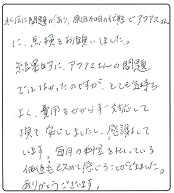 水圧に問題があり、原因不明の状態でアクアさん
に、点検をお願いしました。
結果的に、アクアさんの問題
ではなかったのですが、とても気持ち
よく、費用もかからず対応して
頂き安心しましたし、感謝して
います。毎月の料金を払っている
価値もとても感じることができました。
ありがとうございます。